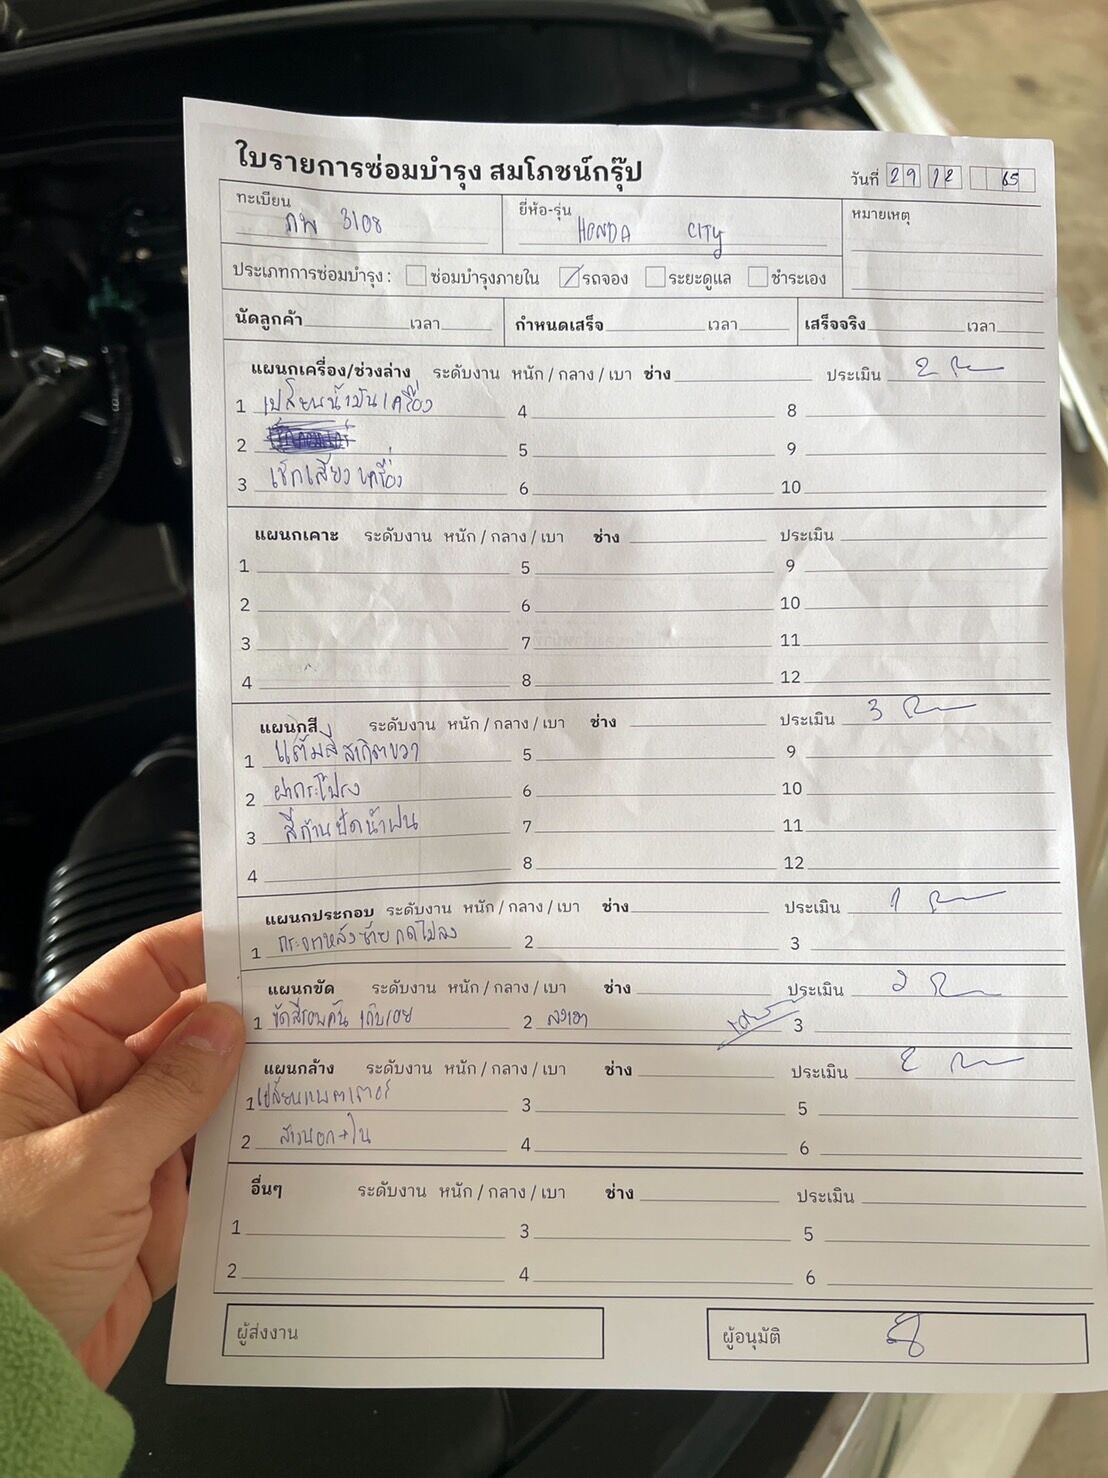 ใบรายการซ่อมบำรุง สมโภชน์กรุ๊ป วันที่ 29 12 65
ทะเบียน ยี่ห้อ-รุ่น หมายเหตุ
ภพ 3108 HONDA CITY
ประเภทการซ่อมบำรุง : ซ่อมบำรุงภายใน รถจอง ระยะดูแล ชำระเอง
นัดลูกค้า เวลา กำหนดเสร็จ เวลา เสร็จจริง เวลา
แผนกเครื่อง/ช่วงล่าง ระดับงาน หนัก / กลาง / เบา ช่าง ประเมิน 2
1 เปลี่ยนน้ำมันเครื่อง 4 8
2 5 9
3 เช็กเสียงเครื่อง 6 10
แผนกเคาะ ระดับงาน หนัก / กลาง / เบา ช่าง ประเมิน
1 5 9
2 6 10
3 7 11
4 8 12
แผนกสี ระดับงาน หนัก / กลาง / เบา ช่าง ประเมิน 3
1 แต้มสีสเกิตขวา 5 9
2 ฝากระโปรง 6 10
3 สีก้านปัดน้ำฝน 7 11
4 8 12
แผนกประกอบ ระดับงาน หนัก / กลาง / เบา ช่าง ประเมิน 1
1 กระจกหลังซ้าย กดไม่ลง 2 3
แผนกขัด ระดับงาน หนัก / กลาง / เบา ช่าง ประเมิน 2
1 ขัดสีรอบคัน เก็บรอย 2 ลงเงา 3
แผนกล้าง ระดับงาน หนัก / กลาง / เบา ช่าง ประเมิน 2
1 เปลี่ยนแบตเตอรี่ 3 5
2 ล้างนอก+ใน 4 6
อื่นๆ ระดับงาน หนัก / กลาง / เบา ช่าง ประเมิน
1 3 5
2 4 6
ผู้ส่งงาน ผู้อนุมัติ